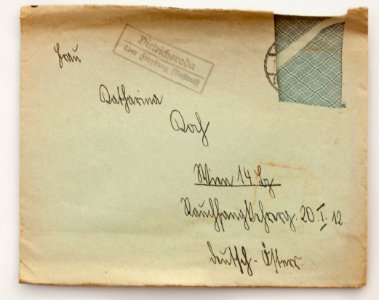 Dietrichsroda
über Freyburg (Unstrut)
Frau
Katharina
Koch
Wien 14. Bz.
Rauchfangkehrerg. 20 I. 12.
Deutsch-Österr.